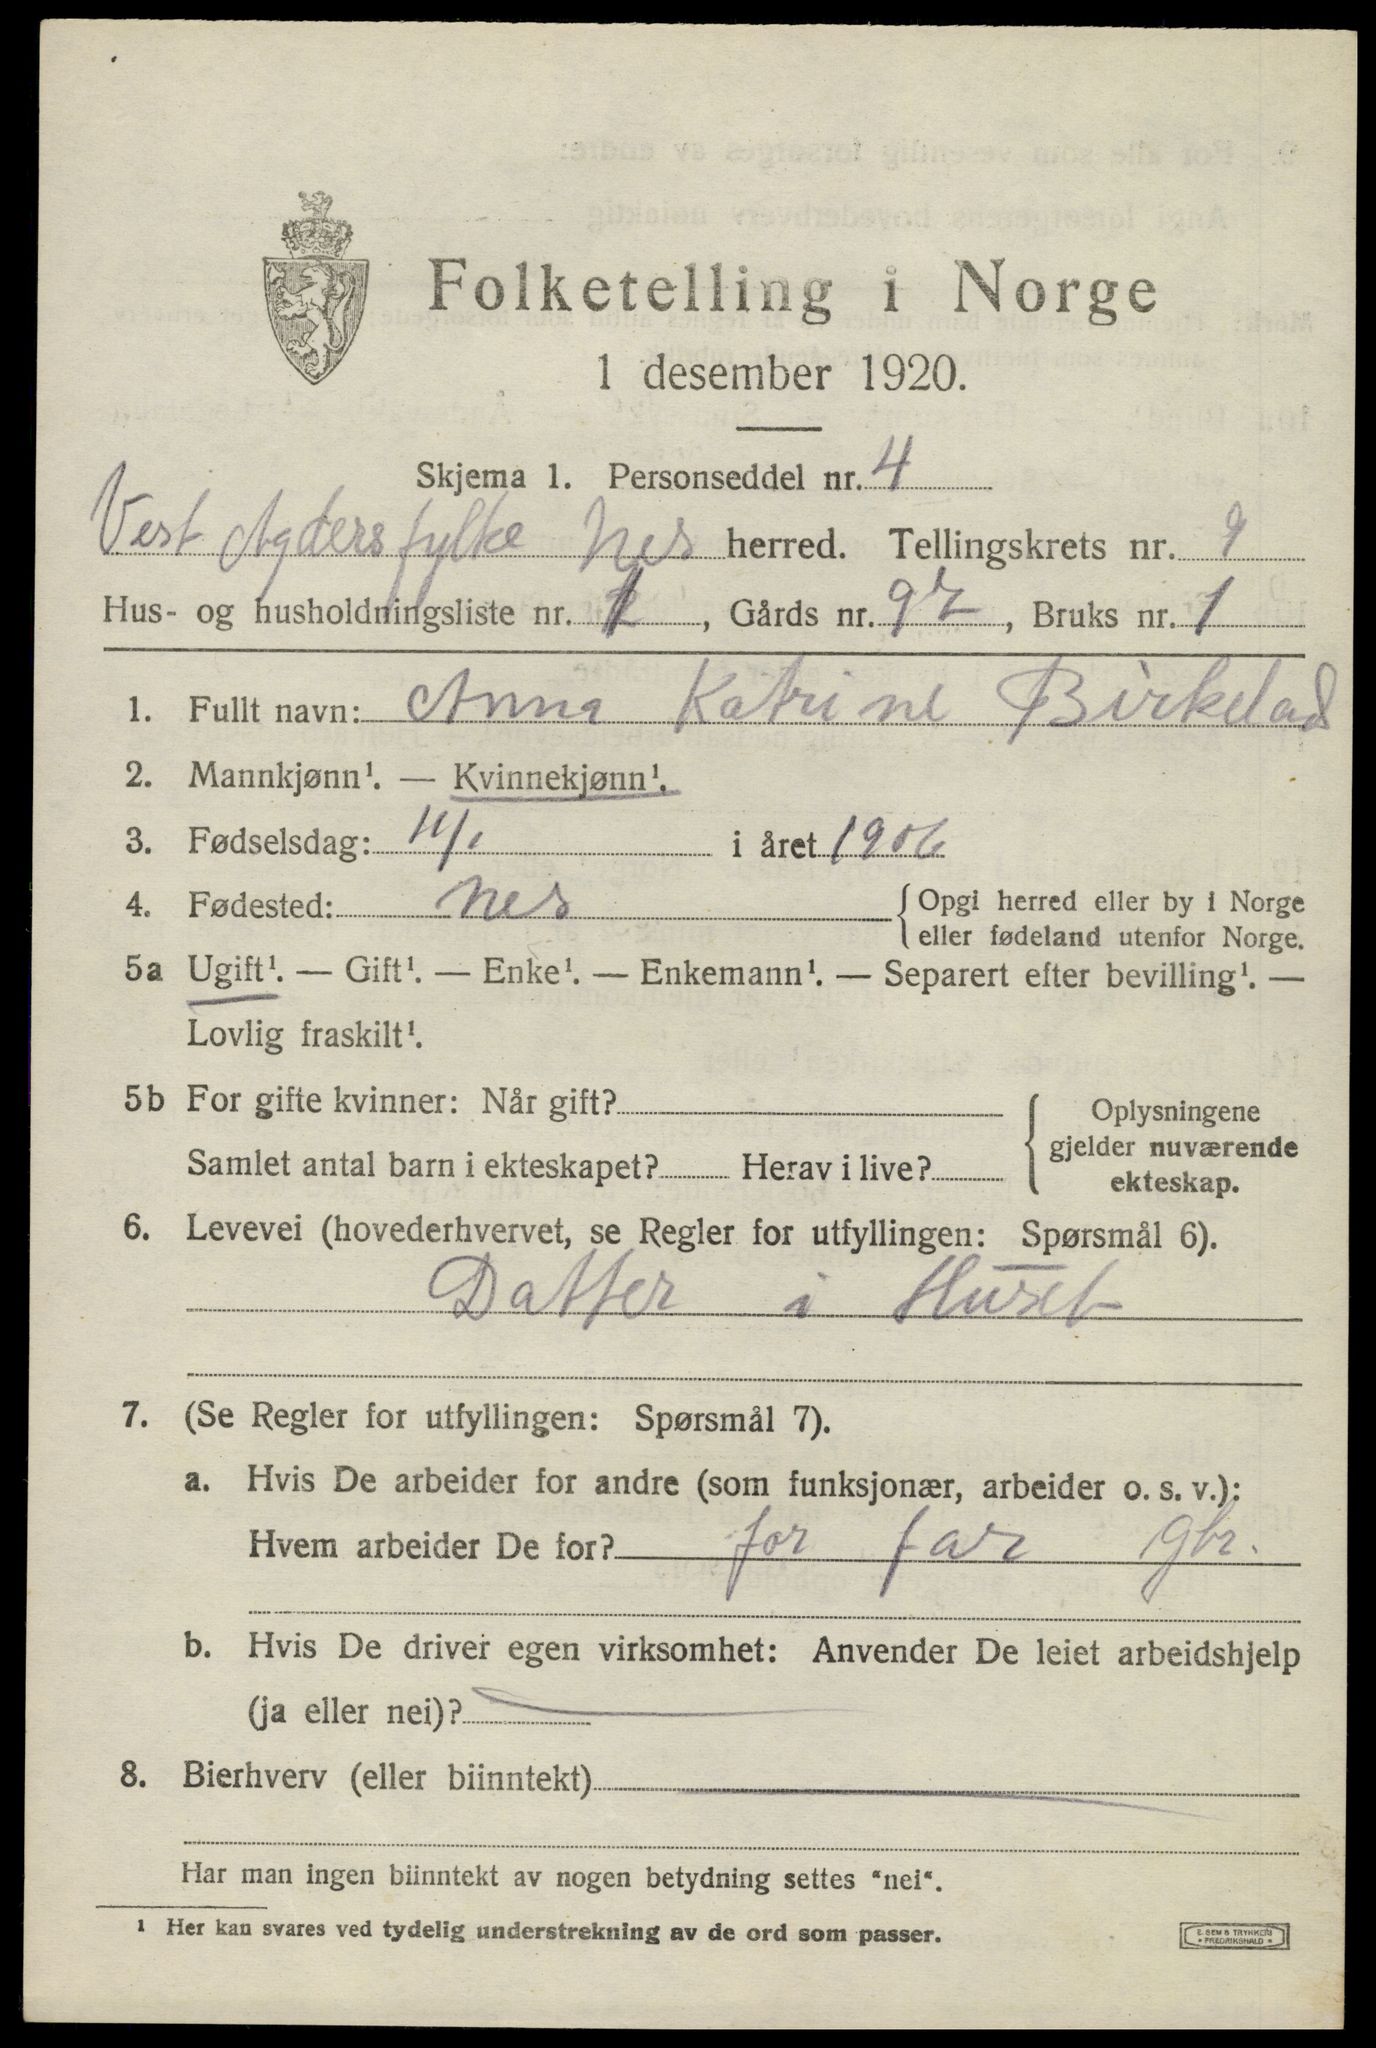 Folketelling i Norge
1 desember 1920.
Skjema 1. Personseddel nr. 4
Vest Agders fylke Nes herred. Tellingskrets nr. 9
Hus- og husholdningsliste nr. , Gårds nr. 97, Bruks nr. 1
1. Fullt navn: Anna Katrine Birkelad
2. Mannkjønn¹. — Kvinnekjønn¹.
3. Fødselsdag: 11/1 i året 1906
4. Fødested: Nes {Opgi herred eller by i Norge
eller fødeland utenfor Norge.
5a Ugift¹. — Gift¹. — Enke¹. — Enkemann¹. — Separert efter bevilling¹. —
Lovlig fraskilt¹.
5b For gifte kvinner: Når gift?
Samlet antal barn i ekteskapet? Herav i live?
Oplysningene
gjelder nuværende
ekteskap.
6. Levevei (hovederhvervet, se Regler for utfyllingen: Spørsmål 6).
Datter i Huset
7. (Se Regler for utfyllingen: Spørsmål 7).
a. Hvis De arbeider for andre (som funksjonær, arbeider o. s. v.):
Hvem arbeider De for? for far Gbr.
b. Hvis De driver egen virksomhet: Anvender De leiet arbeidshjelp
(ja eller nei)?
8. Bierhverv (eller biinntekt)
Har man ingen biinntekt av nogen betydning settes "nei".
1 Her kan svares ved tydelig understrekning av de ord som passer.
E. SEM'S TRYKKERI
FREDRIKSHALD